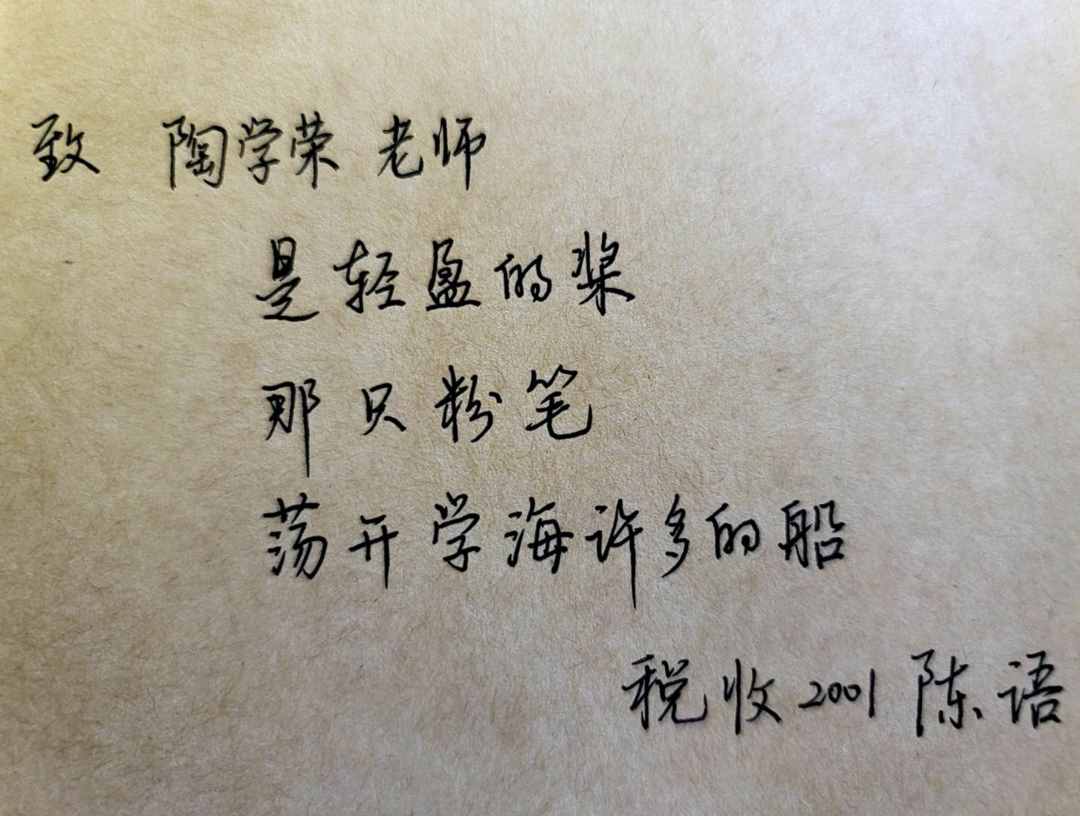 致 陶学荣 老师
是轻盈的桨
那只粉笔
荡开学海许多的船
税收2001 陈语